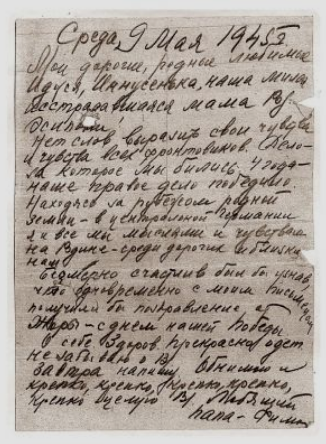 Среда, 9 Мая 1945 г.
Мои дорогие, родные любимые
Идуся, Иннусенька, наша милая
исстрадавшаяся мама Роз.
Осиповн.
Нет слов выразить свои чувства
и чувства всех фронтовиков. Дело
за которое мы бились 4 года
наше правое дело победило.
Находясь за рубежом родной
земли - в центральной Германии
я и все мы мыслями и чувствами
на Родине - среди дорогих и близких
нам
Безмерно счастлив был бы узнав,
что одновременно с моим письмом
получили бы поздравление от
Жоры - с днем нашей Победы
О себе Здоров, прекрасно одет
не забываю о В
Завтра напишу Обнимаю и
крепко, крепко, крепко, крепко,
крепко целую В Любящий
папа - Фима